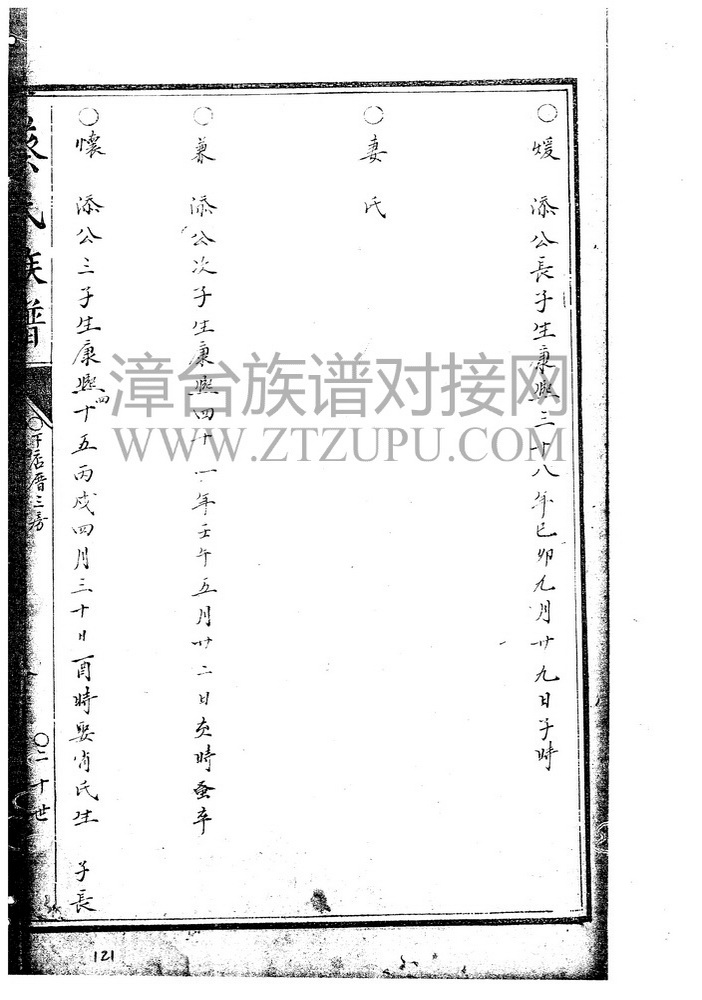 ○煖　添公長子生康熙三十八年己卯九月廿九日子時
○妻氏
○兼　添公次子生康熙四十一年壬午五月廿二日亥時蚤卒
○懷　添公三子生康熙四十五丙戌四月三十日酉時娶肖氏生　子長
蔡氏族譜
○下店厝三房
○二十世
121
漳台族谱对接网
WWW.ZTZUPU.COM